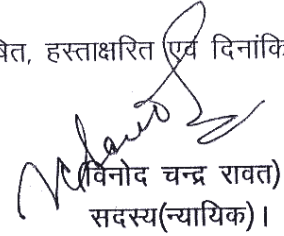 षित, हस्ताक्षरित एवं दिनांकि
(विनोद चन्द्र रावत)
सदस्य(न्यायिक)।